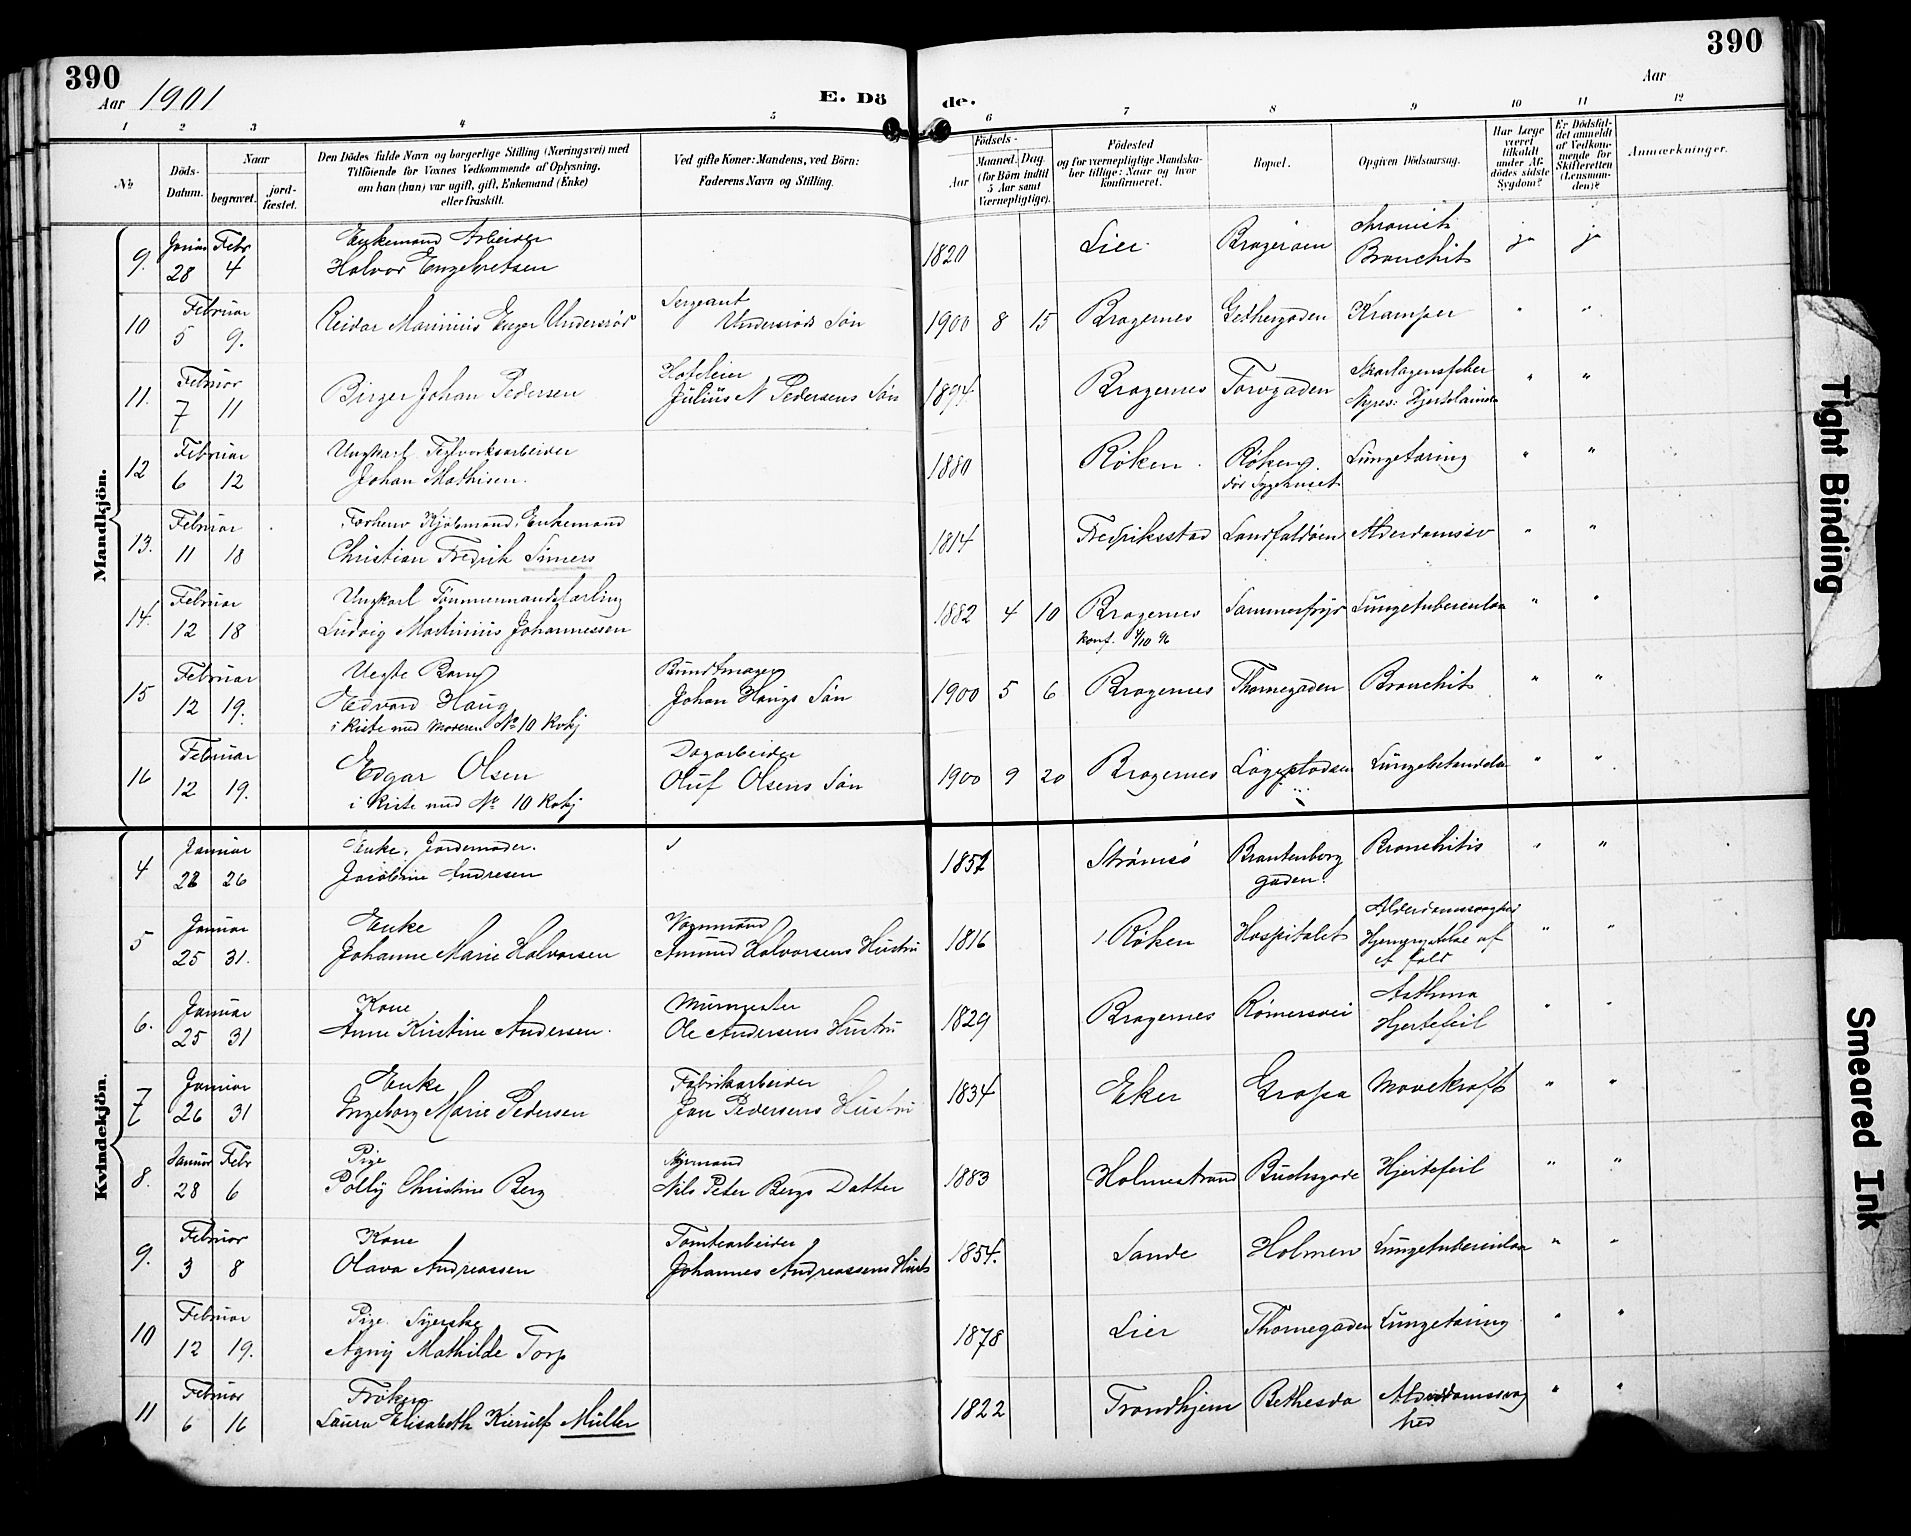 390
390
Aar 1901
E. Dö de.
Aar
1 2 3 4 5 6 7 8 9 10 11 12
№
Döds-Datum.
Naar
begravet.
jord-fæstet.
Den Dödes fulde Navn og borgerlige Stilling (Næringsvei) med
Tilföiende for Voxnes Vedkommende af Oplysning,
om han (hun) var ugift, gift, Enkemand (Enke)
eller fraskilt.
Ved gifte Koner: Mandens, ved Börn:
Faderens Navn og Stilling.
Födsels-
Aar
Maaned. Dag.
(for Börn indtil
5 Aar samt
Værnepligtige).
Födested
og for værnepligtige Mandska-
ber tillige: Naar og hvor
konfirmeret.
Bopæl.
Opgiven Dödsaarsag.
Har Læge
været
tilkaldt
under Af-
dödes sidste
Sygdom?
Er Dödsfal-
det anmeldt
af Vedkom-
mende for
Skifteretten
(Lensman-
den)?
Anmærkninger.
Mandkjön.
9. Januar 28 Febr 4 Enkemand Arbeider
Halvor Engebretsen 1820 Lier Bragerøen chronisk
Bronchit ja ja
10 Februar 5 9. Reidar Marinius Enger Undersrød Sergeant
Undersrøds Søn 1900 8 15 Bragernes Gethergaden Kramper " "
11. Februar 7 11 Birger Johan Pedersen Hafeleier
Julius N Pedersens Søn 1894 Bragernes Torvgaden Skarlagensfeber
" "
12 Februar 6 12 Ungkarl Teglverksarbeider
Johan Mathisen. 1880 Røken. Røken.
død Sygehuset Lungetæring " "
13. Februar 11 18 Forhenv Kjøbmand, Enkemand
Christian Fredrik Simers 1814 Fredriksstad Landfaldøen Alderdomssv " "
14. Februar 12 18 Ungkarl Tømmermandslærling
Ludvig Martinius Johannessen 1882 4 10 Bragernes
konf. 4/10 96 Sommerfryd Lungetuberculose " "
15 Februar 12 19. Uegte Barn
Edvard Haug
i kiste med moderen № 10 Kvkj Bundtmager
Johan Haugs Søn 1900 5 6 Bragernes Thornegaden Bronchit " "
16 Februar 12 19. Edgar Olsen
i kiste med № 10 Kvkj Dagarbeider
Oluf Olsens Søn 1900 9 20 Bragernes Løgpladsen Lungebetændelse " "
Kvindekjön.
4 Januar 22 26 Enke, Jordemoder.
Jacobine Andresen 1851 Strømsø Brantenborg
gaden. Bronchitis " "
5 Januar 25 31. Enke
Johanne Marie Halvorsen Vognmand
Amund Halvorsens Hustru 1816 Røken Hospitalet Alderdomssvaghed
Hjernerystelse af
et fald " "
6. Januar 25 31 Kone
Anne Kristine Andersen. Murmester
Ole Andersens Hustru 1829 Bragernes Rømersvei Asthma
Hjertefeil " "
7 Januar 26 31 Enke
Ingeborg Marie Pedersen Fabrikarbeider
Jan Pedersens Hustru 1834 Eker Gropa Mavekræft " "
8. Januar 28 Febr 6 Pige
Polly Christine Berg Styrmand
Nils Peter Bergs Datter 1883 Holmestrand Buchsgade Hjertefeil " "
9. Februar 3 8 Kone
Olava Andreassen Tomtearbeider
Johannes Andreassens Hust 1854. Sande Holmen Lungetuberculose " "
10 Februar 12 19. Pige. Syerske
Agny Mathilde Torp 1878 Lier Thornegaden Lungetæring " "
11 Februar 6 16 Frøken
Laura Elisabeth Kierulf Müller 1822 Trondhjem Bethesda Alderdomssvag
hed " "
Tight Binding
Smeared Ink